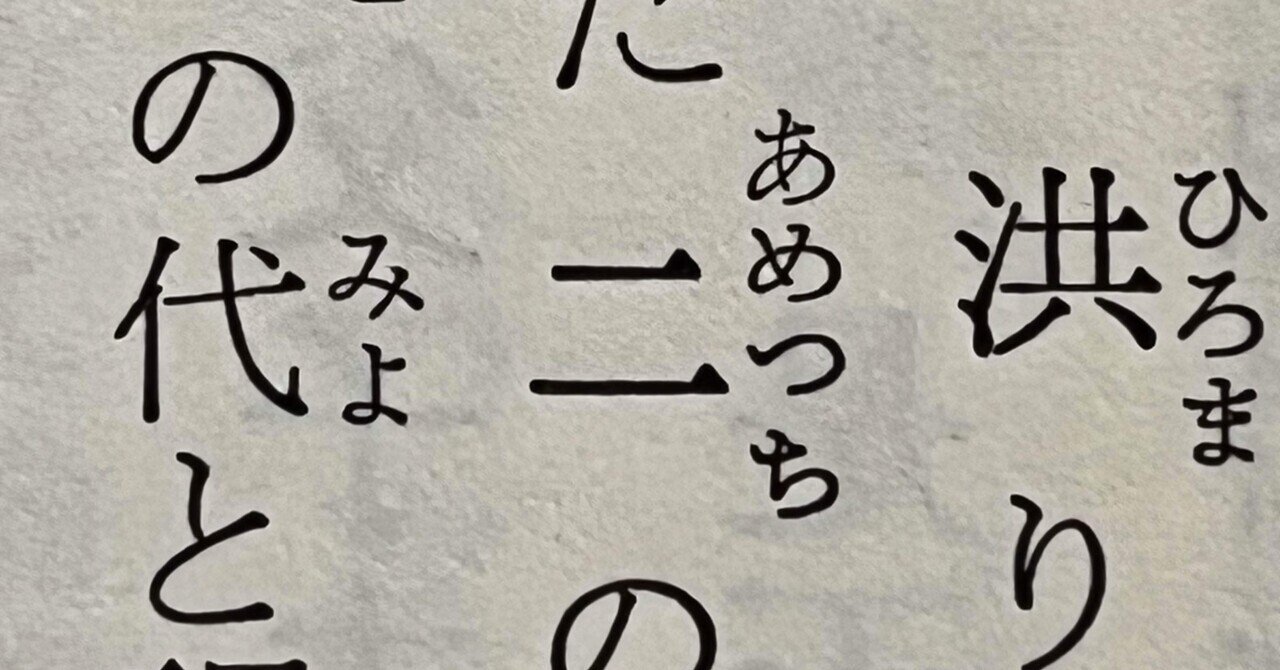 洪り
ひろま
た二の
あめつち
の代と
みよ